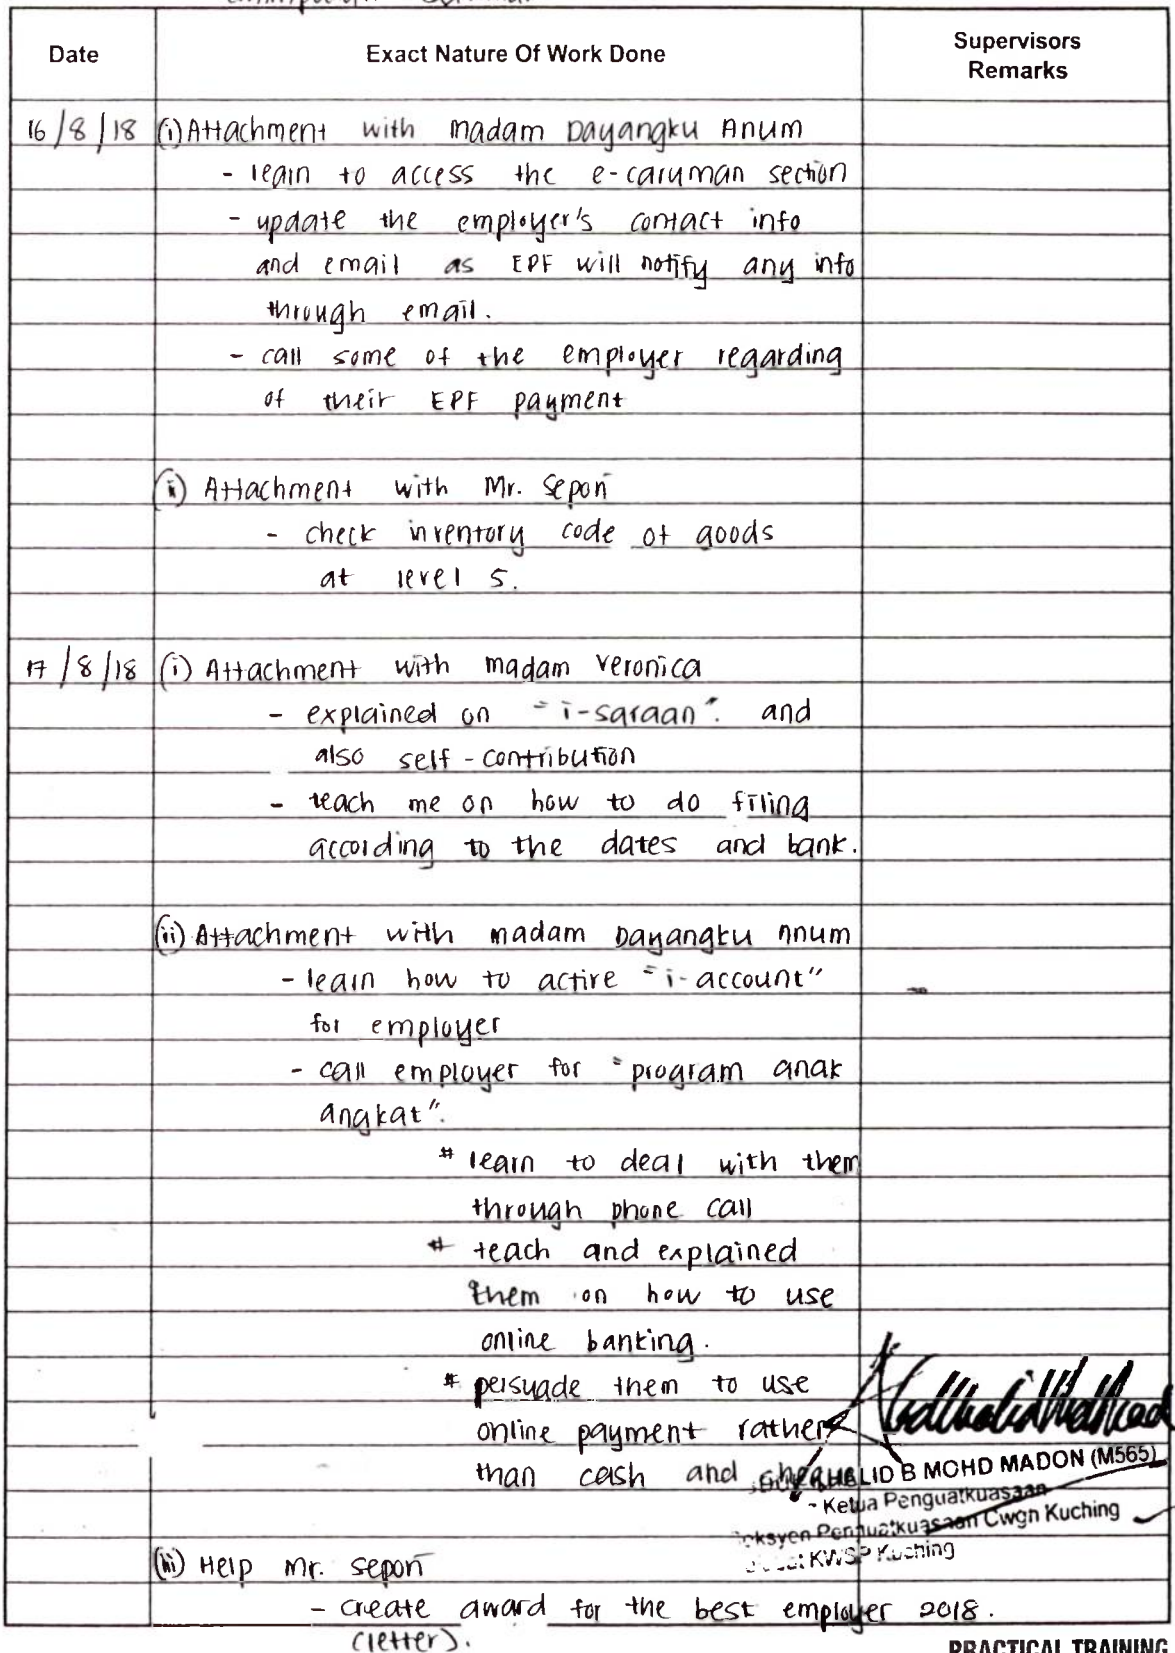 Date
Exact Nature Of Work Done
Supervisors
Remarks
16/8/18 (i) Attachment with madam Dayangku Anum
- learn to access the e-caruman section
- update the employer's contact info
and email as EPF will notify any info
through email.
- call some of the employer regarding
of their EPF payment
(ii) Attachment with Mr. Sepon
- check inventory code of goods
at level 5.
17/8/18 (i) Attachment with madam Veronica
- explained on "i-saraan". and
also self-contribution
- teach me on how to do filing
according to the dates and bank.
(ii) Attachment with madam Dayangku Anum
- learn how to active "i-account"
for employer
- call employer for "program anak
angkat".
# learn to deal with them
through phone call
# teach and explained
them on how to use
online banking.
# persuade them to use
online payment rather
than cash and
KHALID B MOHD MADON (M565)
- Ketua Penguatkuasaan
Seksyen Penguatkuasaan Cwgn Kuching
KWSP Kuching
(iii) Help Mr. Sepon
- create award for the best employer 2018.
(letter).
PRACTICAL TRAINING